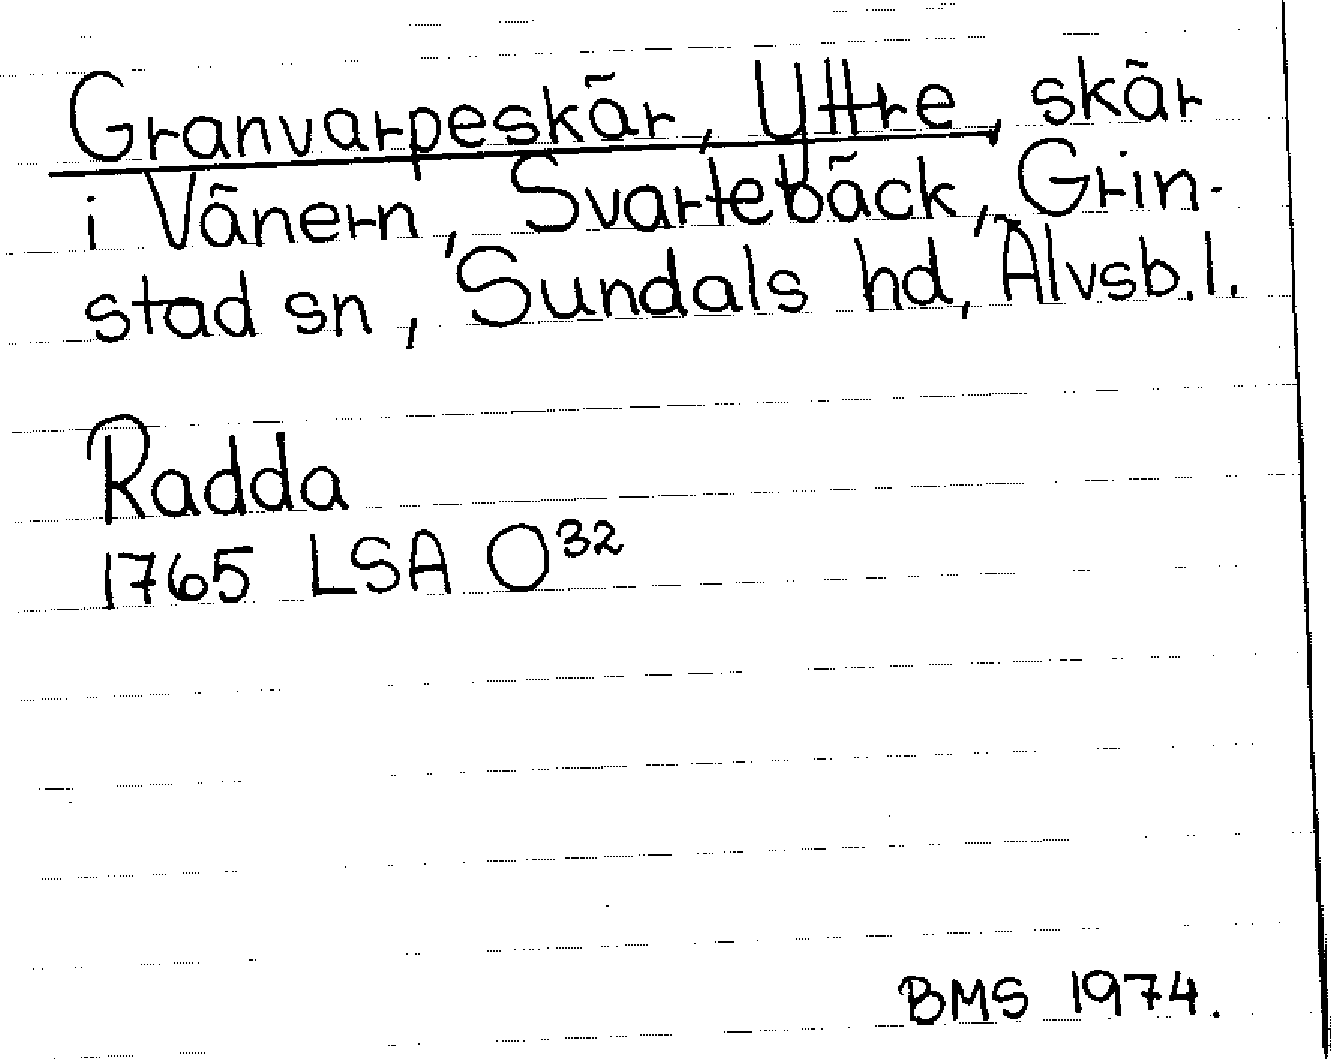 Granvarpeskär, Yttre, skär
i Vänern, Svartebäck, Grin-
stad sn, Sundals hd, Älvsb.l.
Radda
1765 LSA O32
BMS 1974.